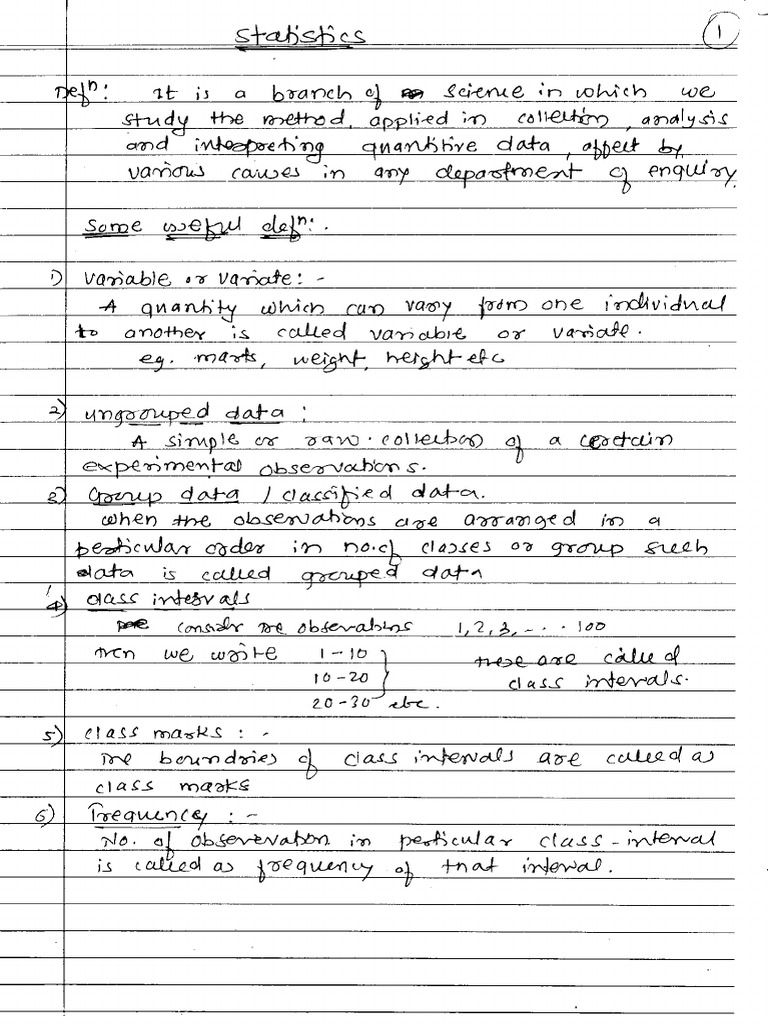 Statistics
1
Defn: It is a branch of science in which we
study the method, applied in collection, analysis
and interpreting quantitive data, affect by
various causes in any department of enquiry.
Some useful defn:.
1) Variable or variate: -
A quantity which can vary from one individual
to another is called variable or variate.
eg. marks, weight, height etc
2) ungrouped data :
A simple or raw collection of a certain
experimental observations.
Group data / classified data.
when the observations are arranged in a
perticular order in no. of classes or group such
data is called grouped data
4) class intervals
consider the observations 1, 2, 3, - . . . 100
then we write 1 - 10 these are called
10 - 20 class intervals.
20 - 30 etc.
5) class marks : -
The boundries of class intervals are called as
class marks
6) Frequency : -
No. of observervation in perticular class - interval
is called as frequency of that interval.